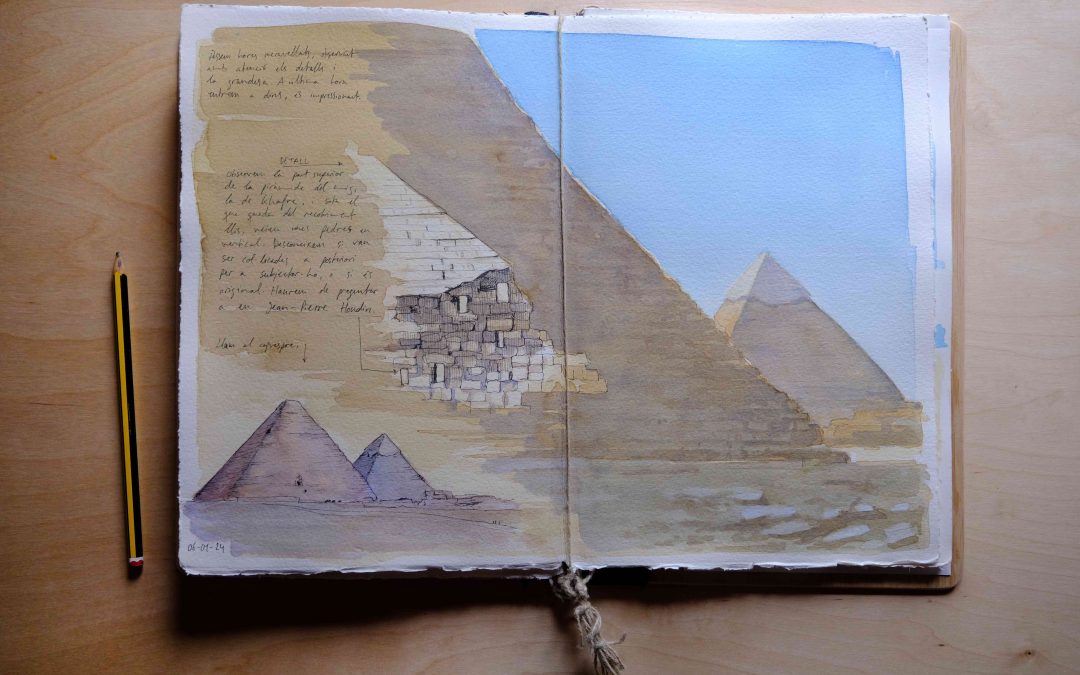 Passem hores meravellats, observant
amb atenció els detalls i
la grandesa. A última hora
entrem a dins, és impressionant.
DETALL
Observem la part superior
de la piràmide del
la de Khafre, i sota el
que queda del recobriment
llis, veiem unes pedres en
vertical. Desconeixem si van
ser col·locades a posteriori
per a subjectar-ho, o si és
original. Haurem de preguntar
a en Jean-Pierre Houdin.
Llum al capvespre.
06-01-24